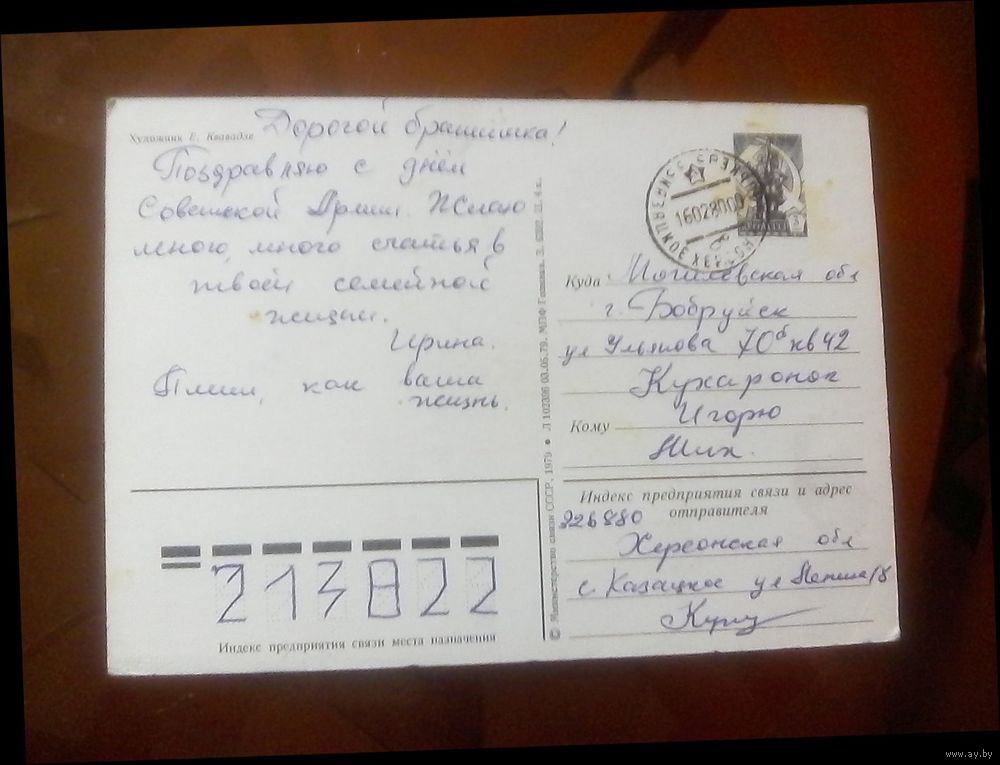 Художник Е. Квавадзе
Дорогой братишка!
Поздравляю с днём
Советской Армии. Желаю
много, много счастья в
твоей семейной
жизни.
Ирина.
Пиши, как ваша
жизнь.
© Министерство связи СССР, 1979 ● Л 102306 03.05.79. МПФ Гознака. З. Ц. 4 к.
160280
Куда Могилевская обл
г. Бобруйск
ул Ульянова 70б кв 42
Кухаронок
Кому Игорю
Мих.
Индекс предприятия связи и адрес
отправителя
326880
Херсонская обл
с. Казацкое ул Ленина
213822
Индекс предприятия связи места назначения
www.ay.by